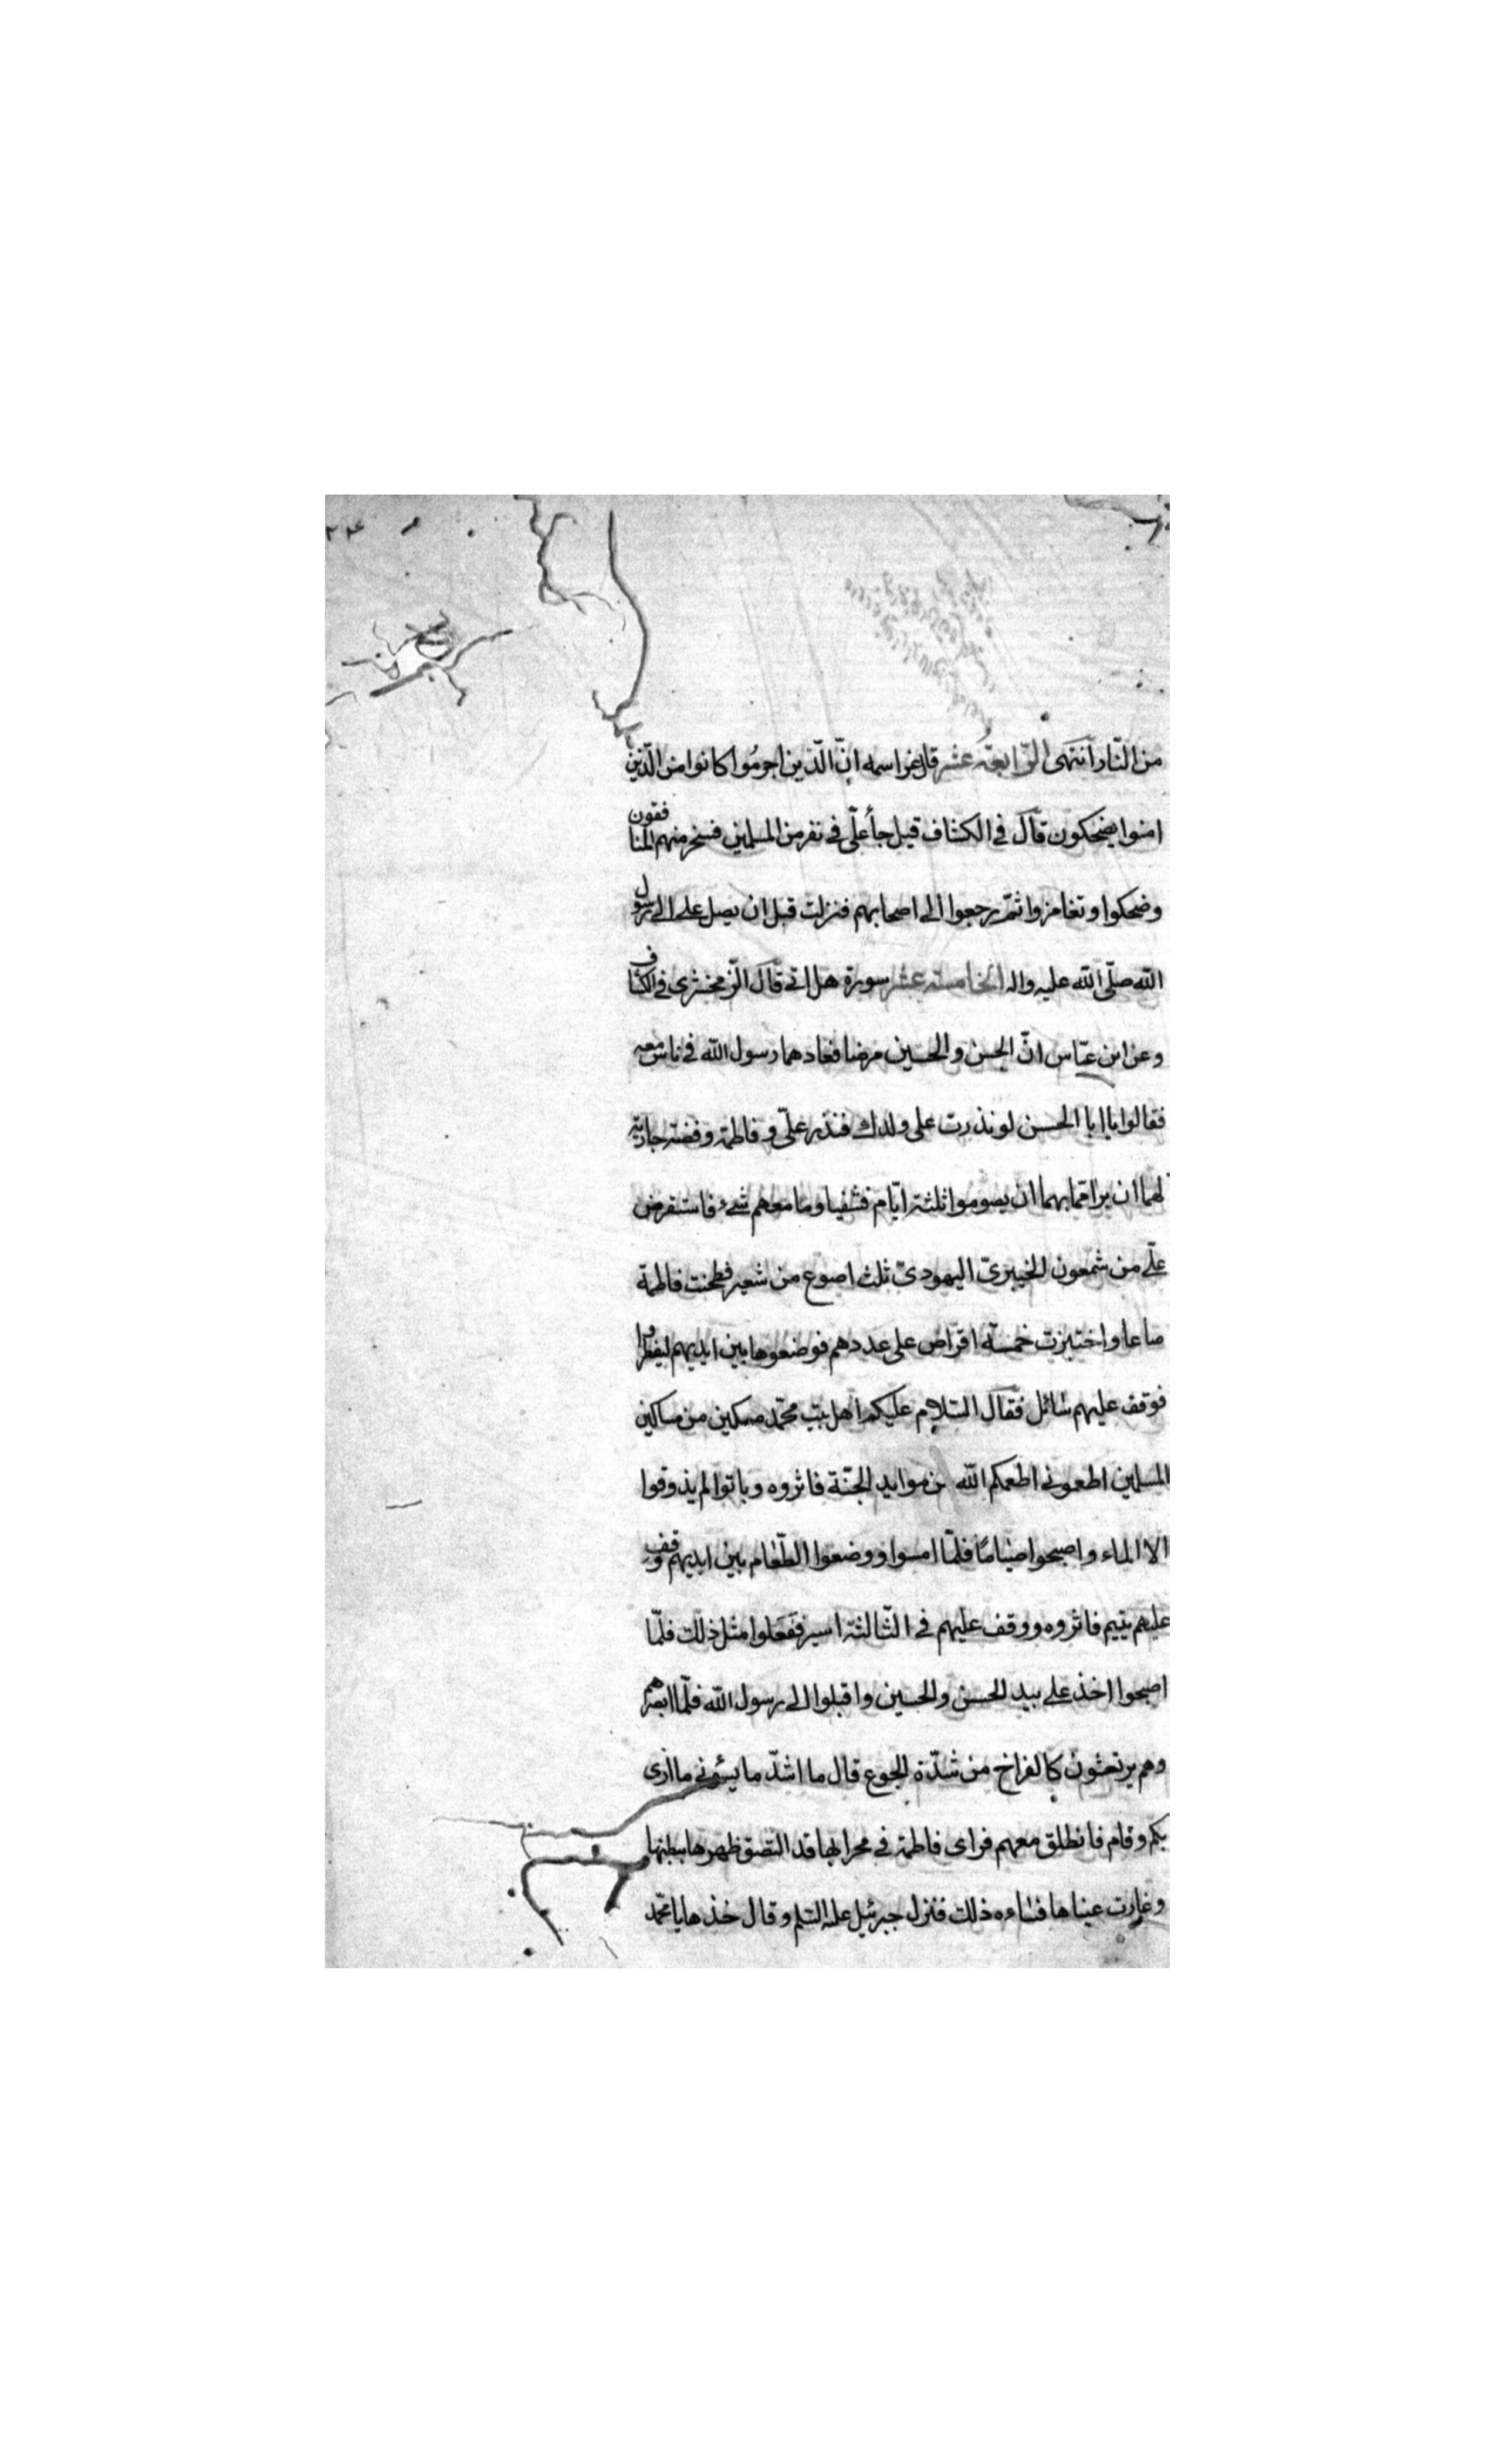 من النّار انتهى الرّابعة عشر قال عز اسمه انّ الّذين اجرمُوا كانوا من الّذين
امنوا يضحكون قال في الكشاف قيل جاء علّى في نفر من المسلمين فسخر منهم المنافقون
وضحكوا وتغامزوا ثمّ رجعوا الى اصحابهم فنزلت قبل ان يصل على الى رسول
الله صلّى الله عليه واله الخامسة عشر سورة هل اتى قال الزّمخشرى في الكشاف
وعن ابن عبّاس انّ الحسن والحسين مرضا فعادهما رسول الله في ناس معه
فقالوا يا ابا الحسن لو نذرت على ولدك فنذر علّى وفاطمة وفضة جارية
لهما ان برا ممّا بهما ان يصوموا ثلثة ايّام فشفيا وما معهم شىء فاستقرض
علّى من شمعون الخيبرىّ اليهودىّ ثلث اصوع من شعير فطحنت فاطمة
صاعا واختبزت خمسة اقراص على عددهم فوضعوها بين ايديهم ليفطروا
فوقف عليهم سائل فقال السّلام عليكم اهل بيت محمّد مسكين من مساكين
المسلمين اطعمونى اطعمكم الله من موايد الجنّة فاثروه وباتوا لم يذوقوا
الا الماء واصبحوا صيامًا فلمّا امسوا ووضعوا الطّعام بين ايديهم وقف
عليهم يتيم فاثروه ووقف عليهم في الثّالثة اسير ففعلوا مثل ذلك فلمّا
اصبحوا اخذ على بيد الحسن والحسين واقبلوا الى رسول الله فلمّا ابصرهم
وهم يرتعشون كالفراخ من شدّة الجوع قال ما اشدّ ما يسؤنى ما ارى
بكم وقام فانطلق معهم فراى فاطمة في محرابها قد التصق ظهرها ببطنها
وغارت عيناها فساءه ذلك فنزل جبرئيل عليه السّلم وقال خذها يا محمّد